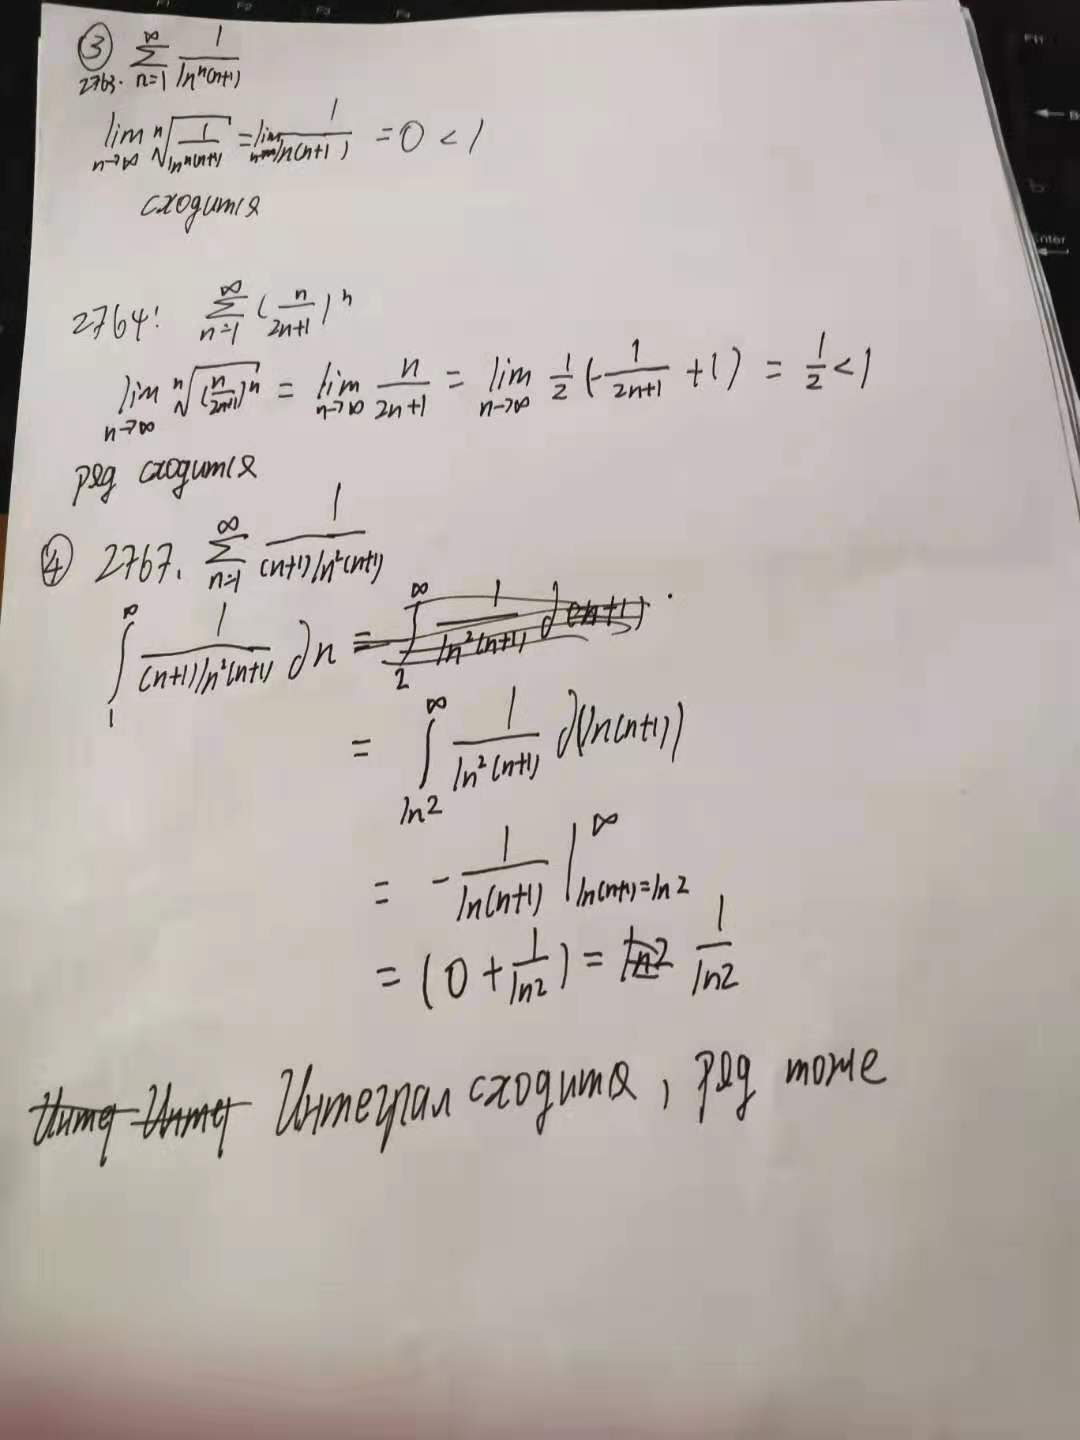 ③ ∑_{n=1}^{∞} 1/(ln^n(n+1))
2763.
lim_{n→∞} ⁿ√(1/(ln^n(n+1))) = lim_{n→∞} 1/(ln(n+1)) = 0 < 1
сходится
2764: ∑_{n=1}^{∞} (n/(2n+1))^n
lim_{n→∞} ⁿ√((n/(2n+1))^n) = lim_{n→∞} n/(2n+1) = lim_{n→∞} 1/2 (-1/(2n+1) + 1) = 1/2 < 1
ряд сходится
④ 2767. ∑_{n=1}^{∞} 1/((n+1)ln²(n+1))
∫_{1}^{∞} 1/((n+1)ln²(n+1)) dn = ∫_{2}^{∞} 1/(ln²(n+1)) d(n+1)
= ∫_{ln2}^{∞} 1/(ln²(n+1)) d(ln(n+1))
= -1/(ln(n+1)) |_{ln(n+1)=ln2}^{∞}
= (0 + 1/ln2) = ln2 1/ln2
Интег Интег Интеграл сходится, ряд тоже